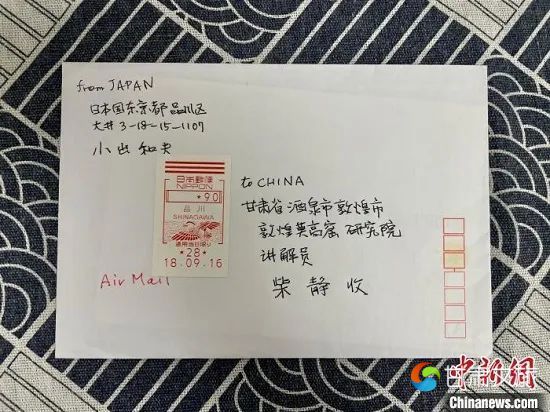 from JAPAN
日本国东京都品川区
大井3-18-15-1107
小出和夫
日本郵便
NIPPON
*90
品川
SHINAGAWA
*28*
18.09.16
Air Mail
to CHINA
甘肃省酒泉市敦煌市
敦煌莫高窟研究院
讲解员
柴静收
中新网
Chinanews.com